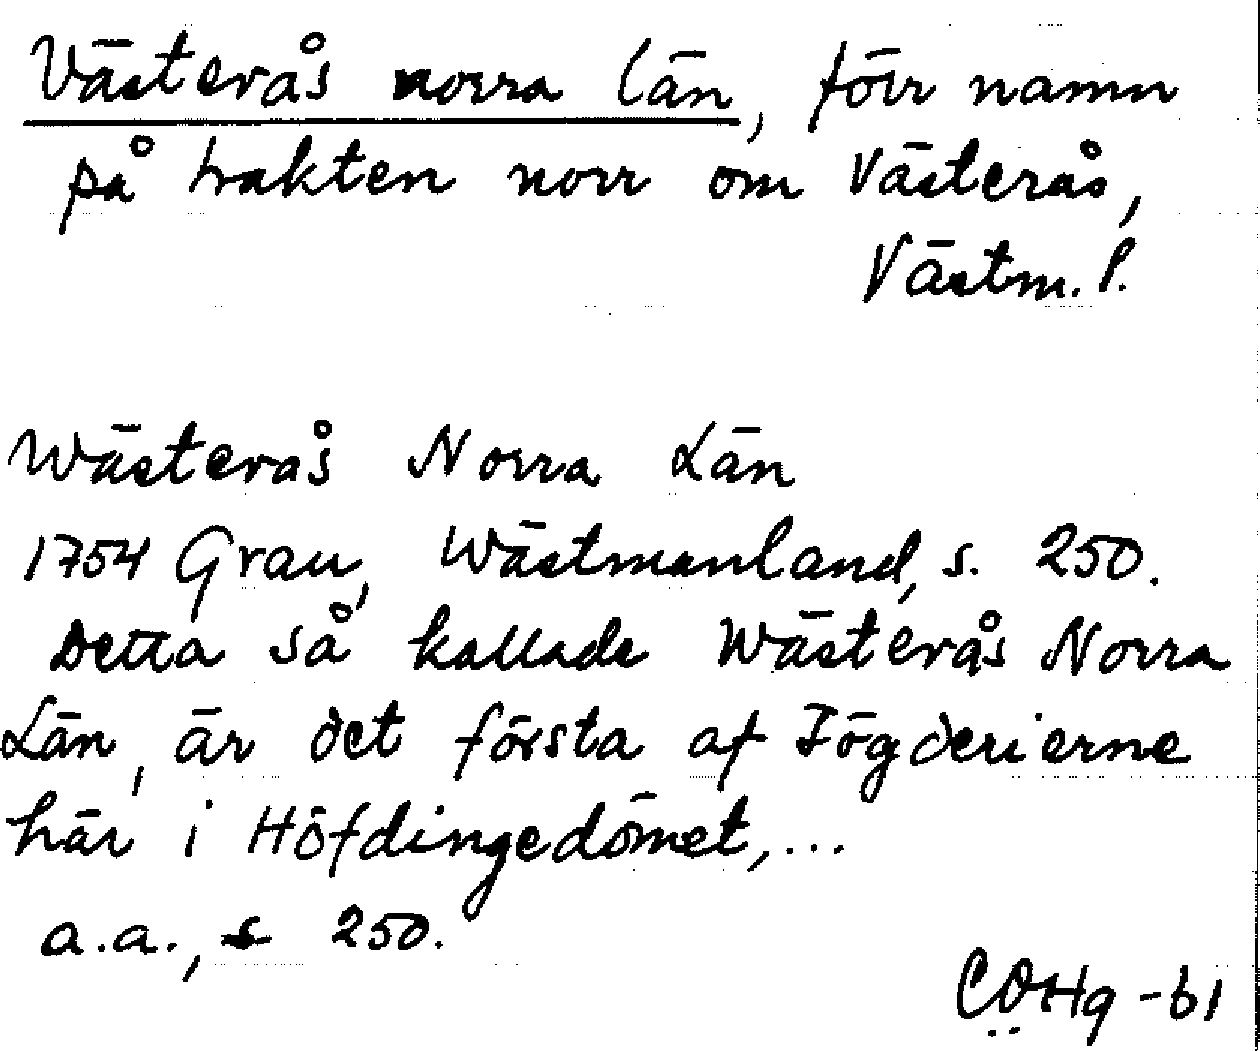 Västerås norra län, förr namn
på trakten norr om Västerås,
Västm. l.
Wästerås Norra Län
1754 Grau, Wästmanland, s. 250.
Detta så kallade Wästerås Norra
Län, är det första af Fögderierne
här i Höfdingedömet,...
a.a., s 250.
CÖHg -61